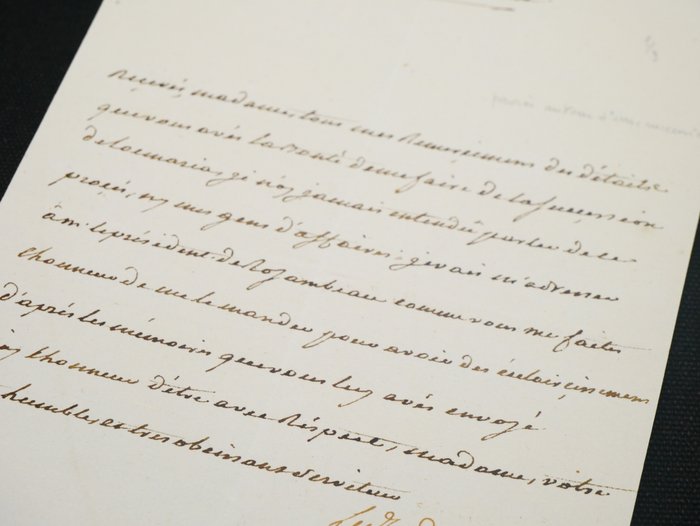 Recevés, madame, tous mes Remerciments des détails
que vous avés la bonté de me faire de la succession
de Locmaria, je n'ay jamais entendu parler de ce
procés, ny mes gens d'affaires; je vais m'adresser
à m. le président de Rozambeau comme vous me faites
l'honneur de me le mander pour avoir des éclaircissemens
d'après les mémoires que vous luy avés envoyé
j'ay l'honneur d'être avec Respect, madame, votre
humble et très obéissant serviteur